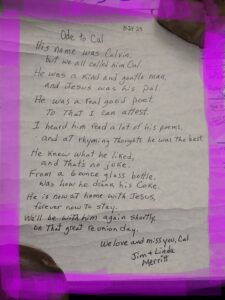 8-24-23
Ode to Cal
His name was Calvin,
but we all called him Cal.
He was a kind and gentle man,
and Jesus was his pal.
He was a real good poet,
To that I can attest.
I heard him read a lot of his poems,
and at rhyming thoughts he was the best.
He knew what he liked,
and that's no joke.
From a ounce glass bottle,
was how he drank his Coke.
He is now at home with Jesus,
forever now to stay.
We'll be with him again shortly,
on that great reunion day.
We love and miss you, Cal
Jim & Linda
Merritt